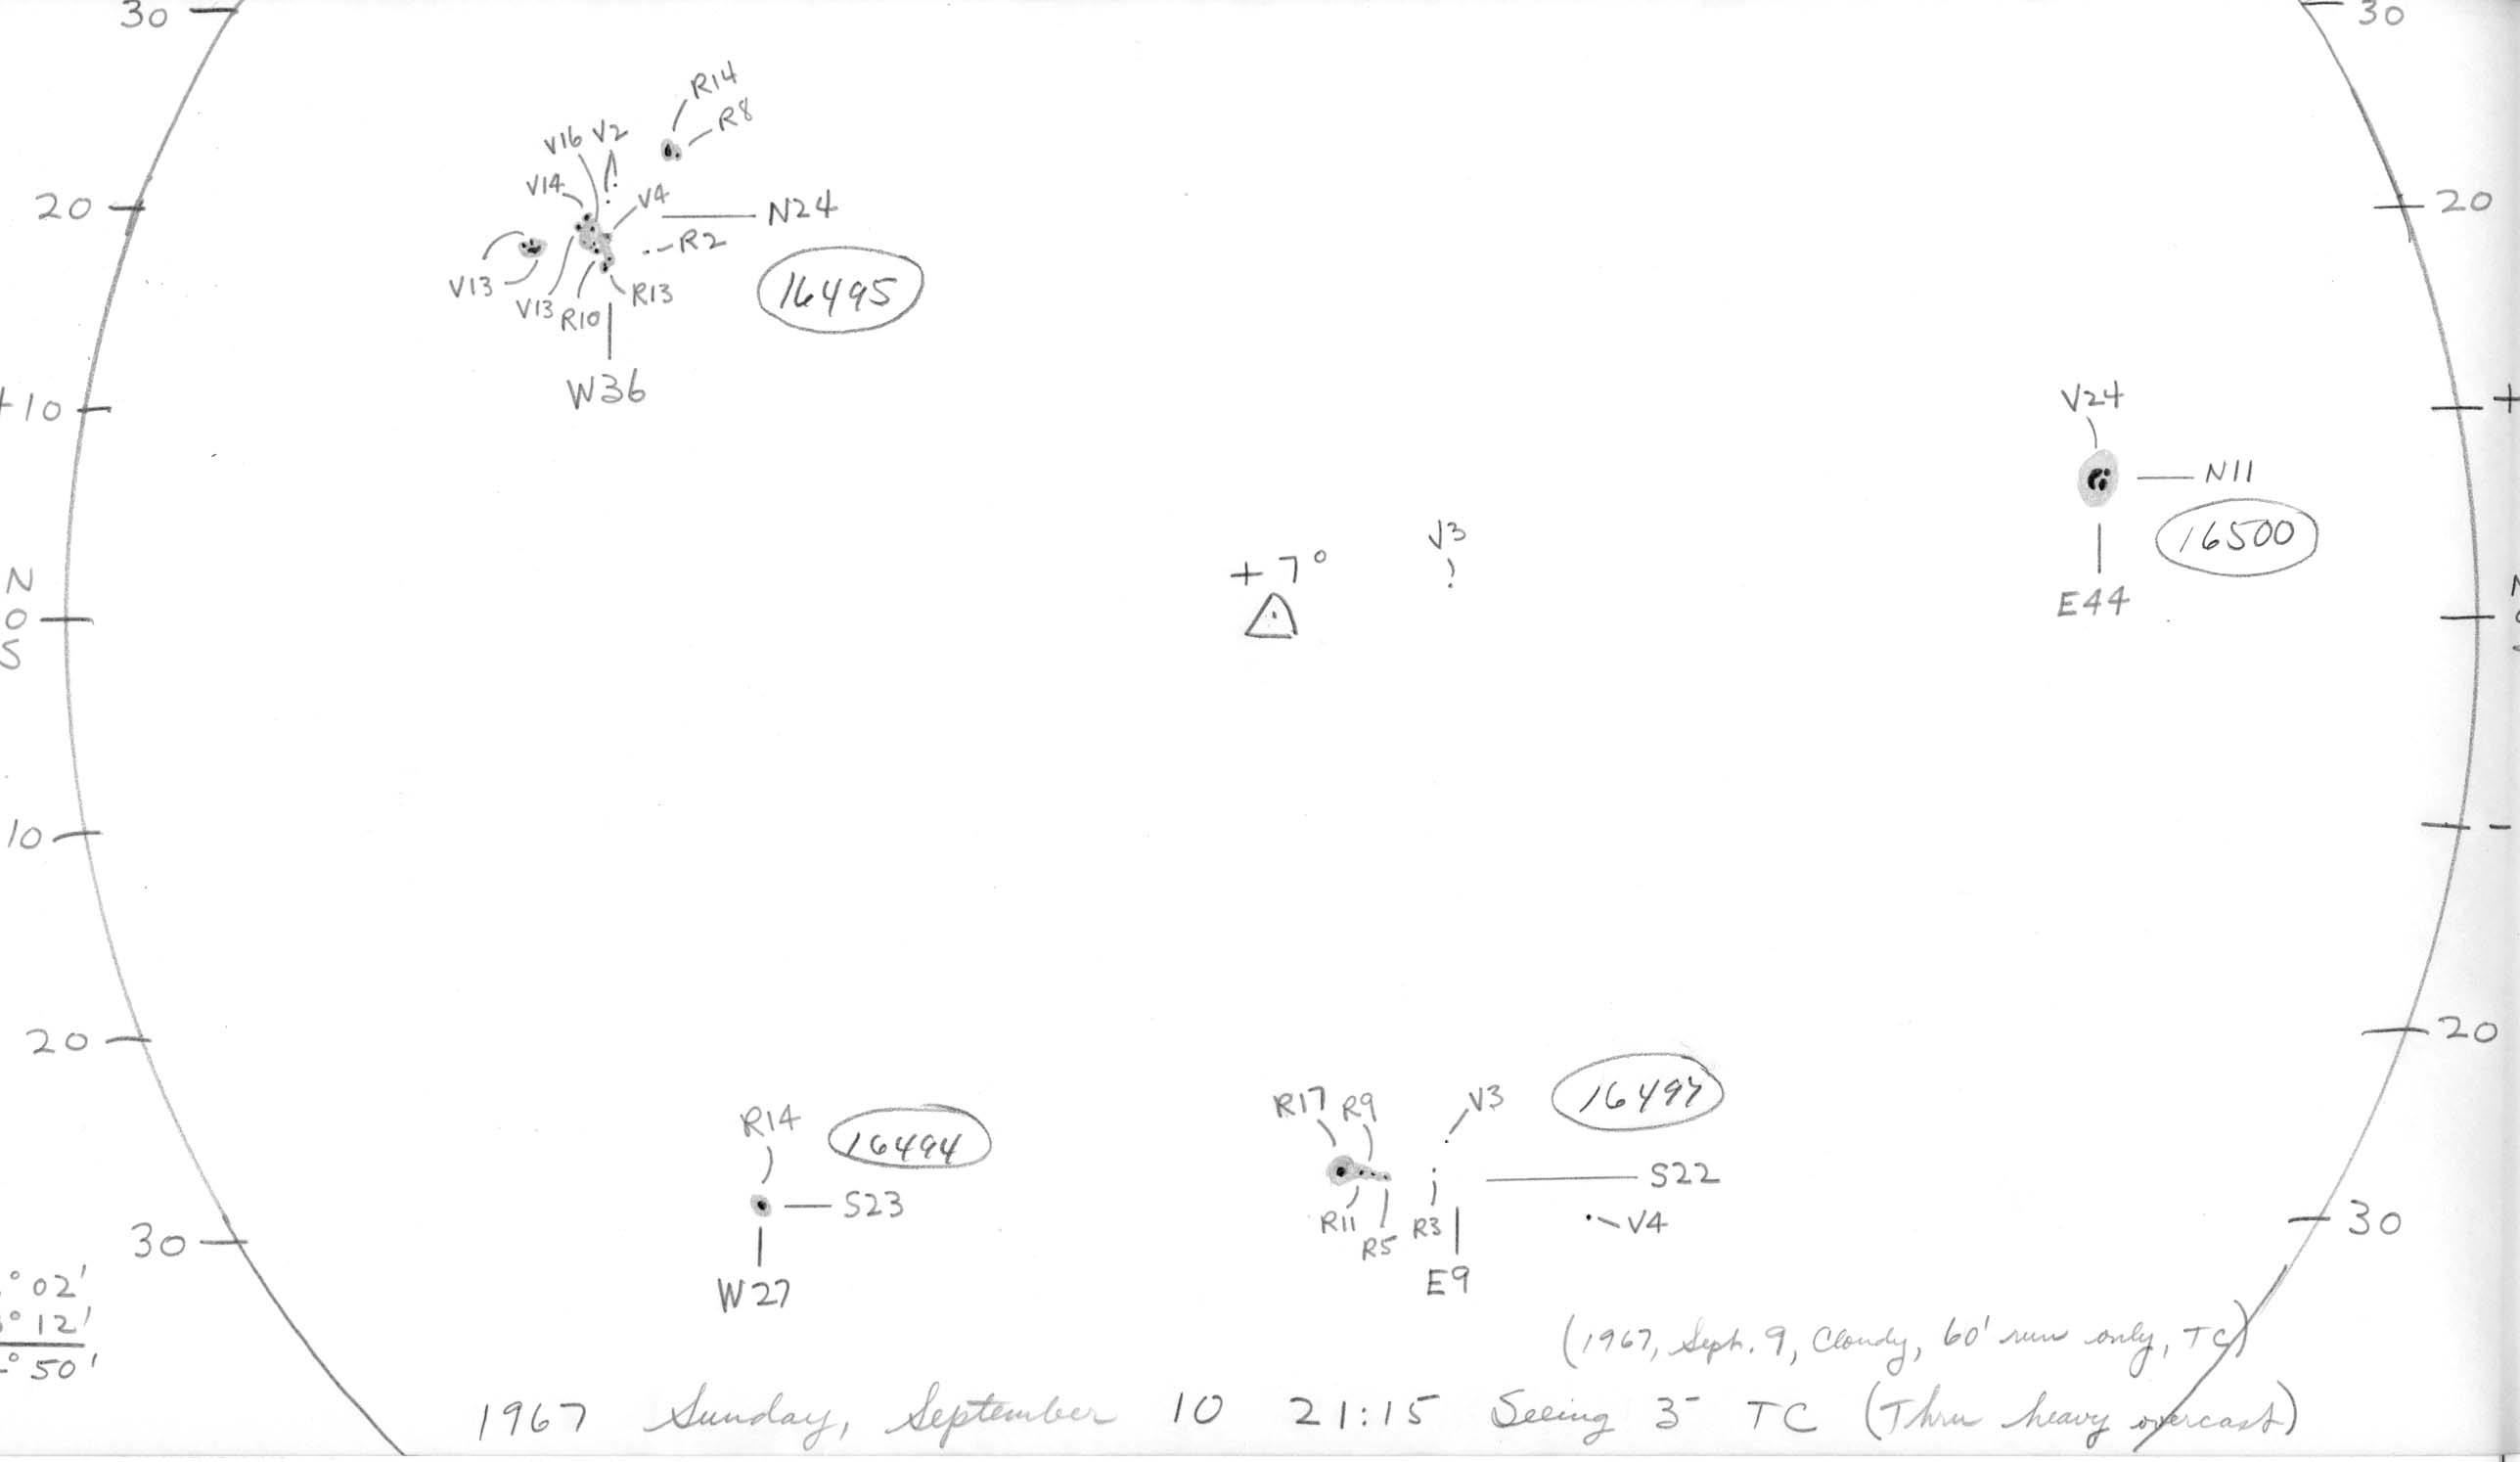 30
30
R14
R8
V16 V2
V14
V4
20
N24
20
R2
V13
R13
16495
V13
R10
W36
+10
+
V24
N11
16500
V3
+7°
E44
N
0
S
10
-
20
20
R17 R9
V3
16497
R14
16494
S22
S23
R11
R5
R3
V4
E9
30
30
W27
° 02'
° 12'
° 50'
(1967, Sept. 9, Cloudy, 60' run only, TC)
1967 Sunday, September 10 21:15 Seeing 3- TC (Thru heavy overcast)